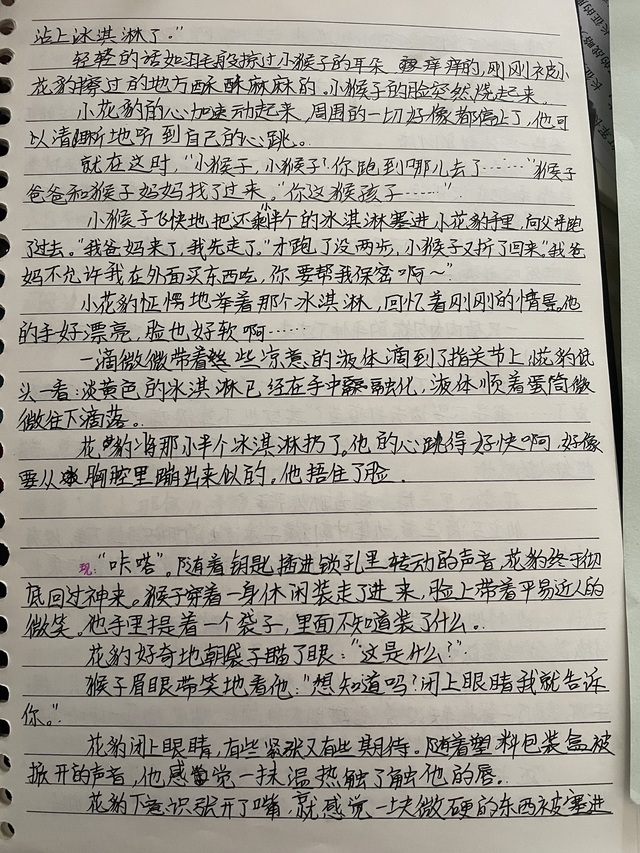 沾上冰淇淋了。"
轻轻的话如羽毛般擦过小猴子的耳朵,痒痒的,刚刚被小
花豹擦过的地方酥酥麻麻的。小猴子的脸轰然烧起来。
小花豹的心加速动起来,周围的一切好像都停止了,他可
以清晰地听到自己的心跳。
就在这时,"小猴子,小猴子!你跑到哪儿去了……"猴子
爸爸和猴子妈妈找了过来,"你这猴孩子……"
小猴子飞快地把还剩小半个的冰淇淋塞进小花豹手里,向父母跑
了过去。"我爸妈来了,我先走了。"才跑了没两步,小猴子又折了回来"我爸
妈不允许我在外面买东西吃,你要帮我保密啊~"
小花豹怔愣地举着那个冰淇淋,回忆着刚刚的情景,他
的手好漂亮,脸也好软啊……
一滴微微带着些凉意的液体滴到了指关节上,花豹低
头一看:淡黄色的冰淇淋已经在手中融化,液体顺着蛋筒微
微往下滴落。
花豹将那小半个冰淇淋扔了。他的心跳得好快啊,好像
要从胸腔里蹦出来似的。他捂住了脸。
现:"咔嗒"。随着钥匙插进锁孔里转动的声音,花豹终于彻
底回过神来。猴子穿着一身休闲装走了进来,脸上带着平易近人的
微笑。他手里提着一个袋子,里面不知道装了什么。
花豹好奇地朝袋子瞄了眼:"这是什么?"
猴子眉眼带笑地看他:"想知道吗?闭上眼睛我就告诉
你。"
花豹闭上眼睛,有些紧张又有些期待。随着塑料包装盒被
掀开的声音,他感觉一抹温热触了触他的唇。
花豹下意识张开了嘴,就感觉一块微硬的东西被塞进